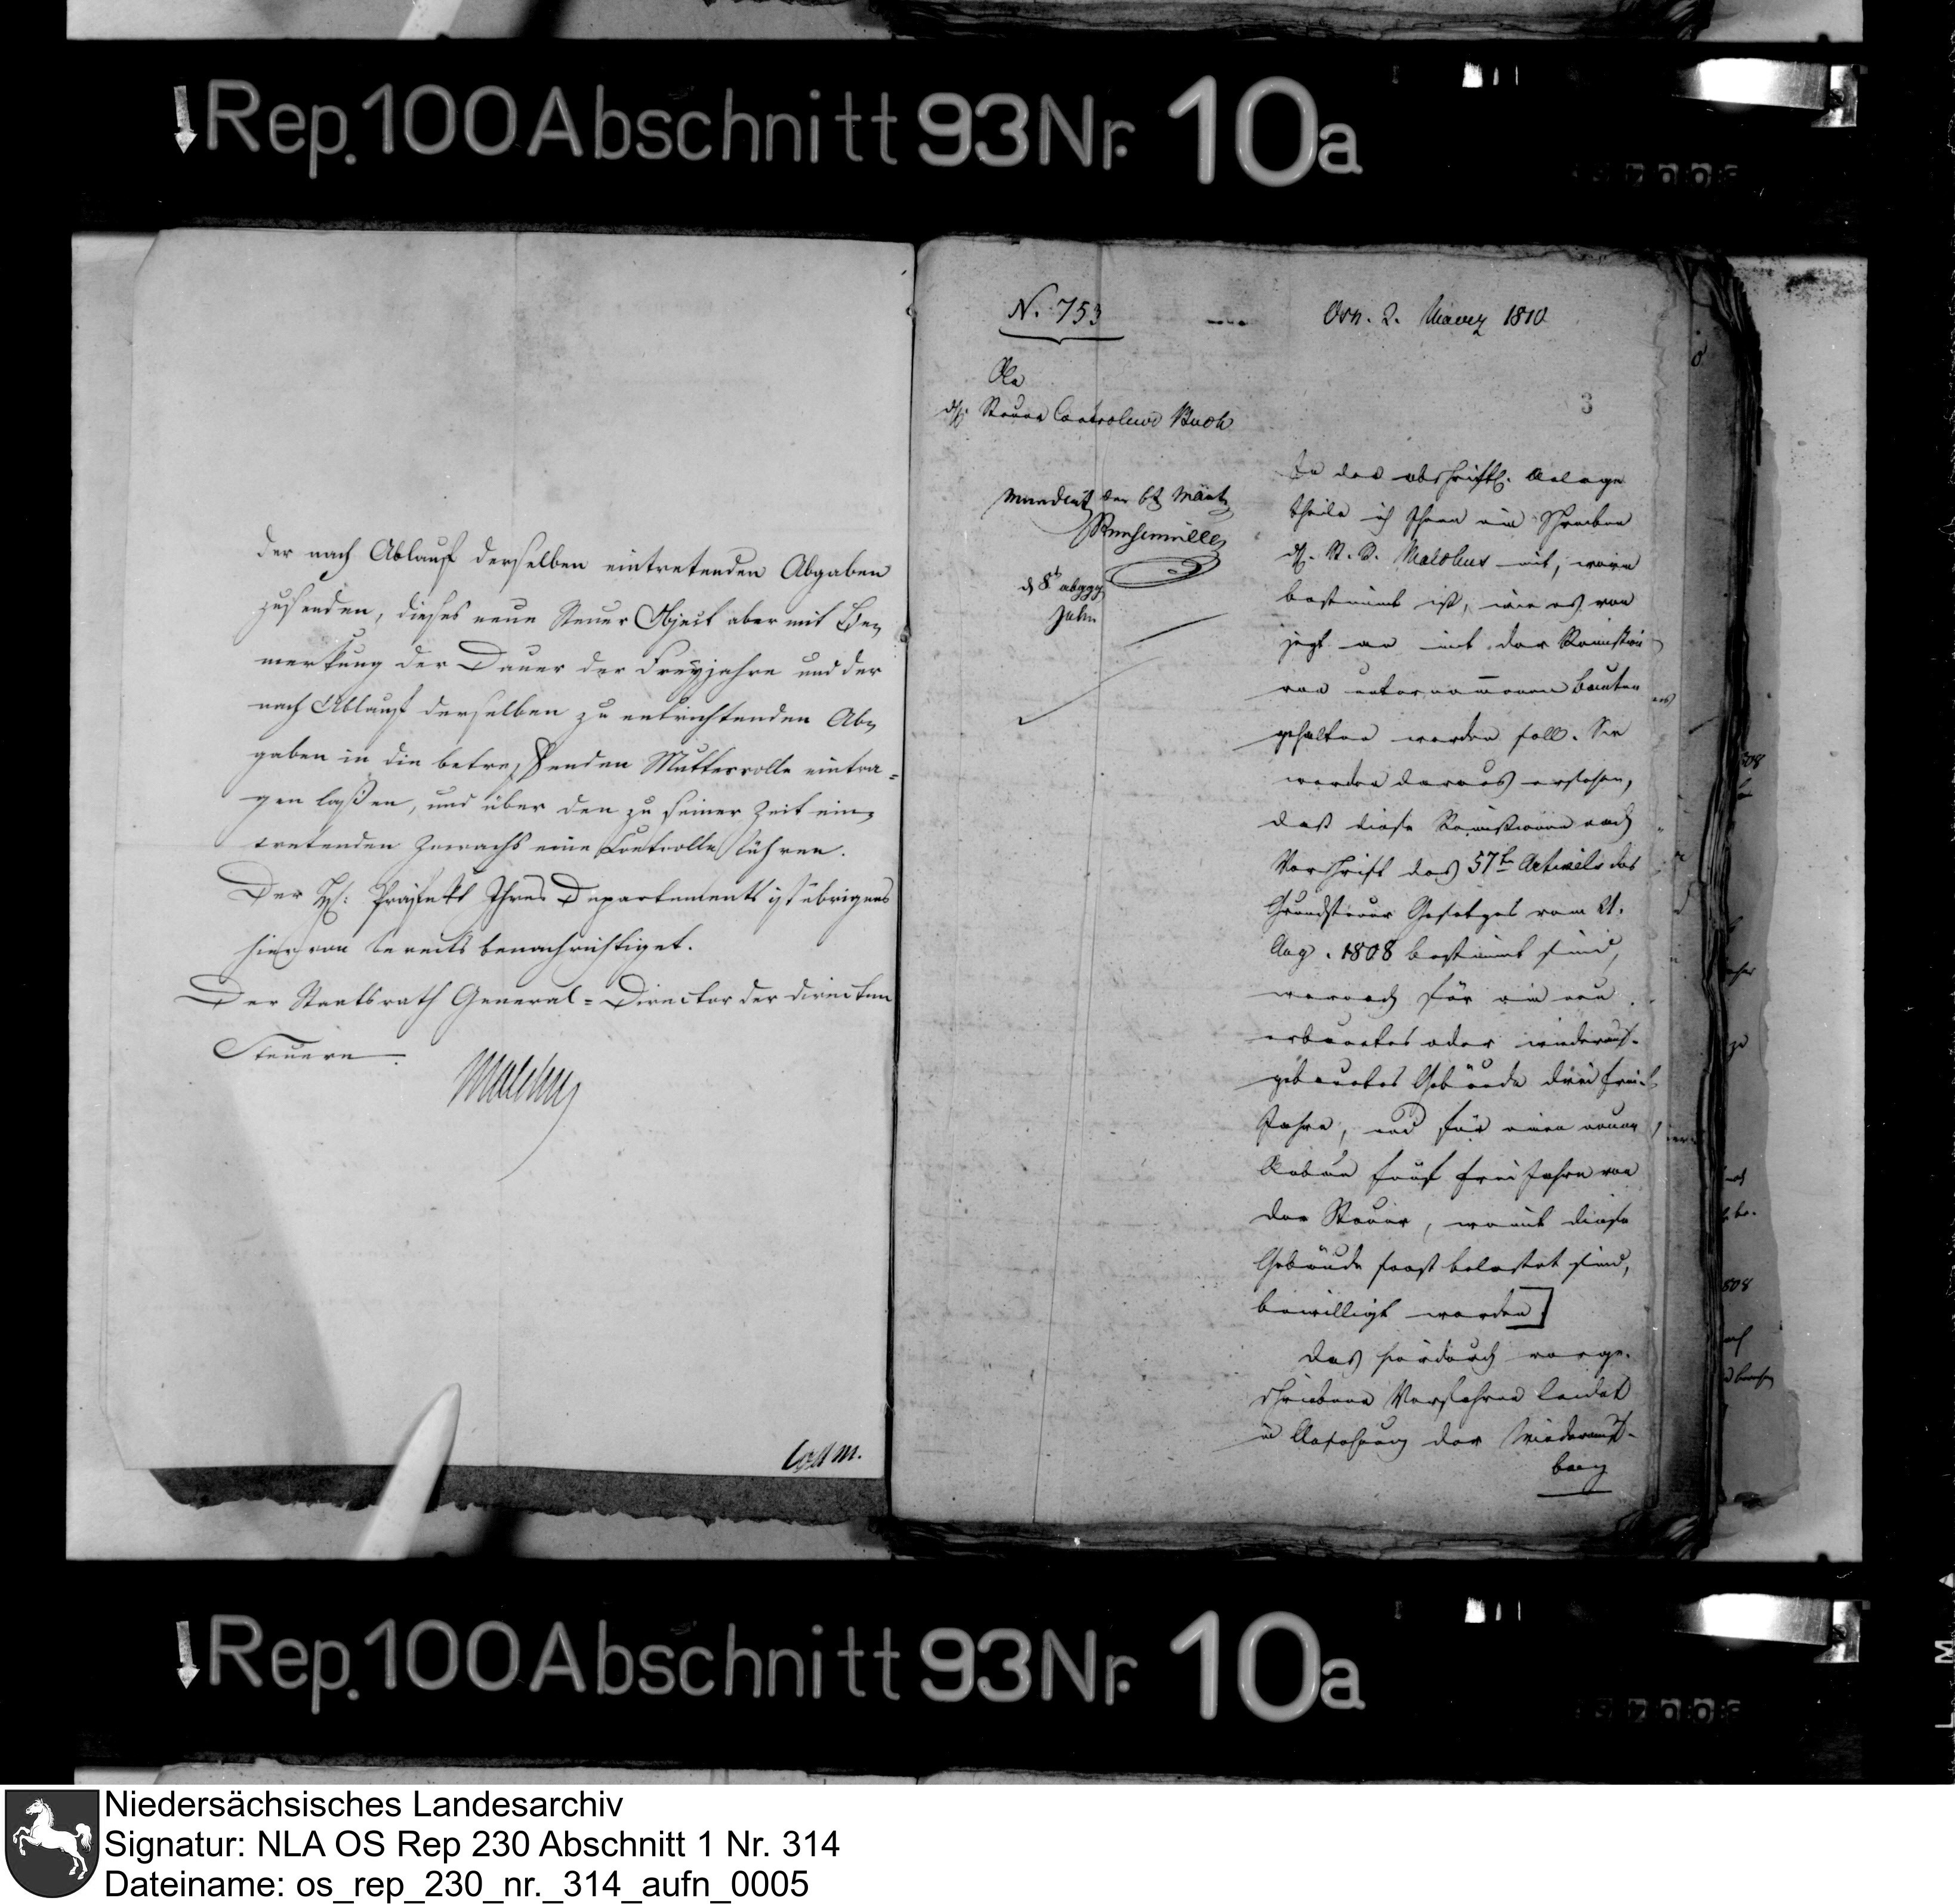 Rep. 100 Abschnitt 93 Nr. 10a
der nach Ablauf derselben eintretenden Abgaben
zusenden, dieses neue Steuer Object aber mit Be„
merkung der Dauer der Freyjahre und der
nach Ablauf derselben zu entrichtenden Ab„
gaben in die betreffenden Mutterrolle eintra=
gen laßen, und über den zu seiner Zeit ein„
tretenden Zuwachs eine Controlle führen.
Der H: Präfekt Ihres Departements ist übrigens
hiervon bereits benachrichtiget.
Der Staatsrath General=Director der directen
Steuern.
Malchus
N. 753
Osn. 2. Maerz 1810
3
Steuer Controleur Buch
mundirt den 6t März
d 8t abggg
Jahn
In der abschriftl. Anlage
theile ich Ihnen ein Schreiben
H. St. R. Malchus mit, worin
bestimmt ist, wie es von
jezt an mit der Remission
von unternommenen Bauten
gehalten werden soll. Sie
werden daraus ersehen,
daß diese Remissionen nach
Vorschrift des 57t Artikels des
Grundsteuer Gesetzes vom 21.
Aug. 1808 bestimmt sind,
wornach für ein neu
erbauetes oder wiederauf-
gebauetes Gebäude drei Frei-
Jahre, und für einen neuen
Anbau fünf Frei Jahre von
der Steuer, womit diese
Gebäude sonst belastet sind,
bewilligt werden]
Das hierdurch vorge-
schriebene Verfahren leidet
in Ansehung der Wiederauf-
bauung
Rep. 100 Abschnitt 93 Nr. 10a
Niedersächsisches Landesarchiv
Signatur: NLA OS Rep 230 Abschnitt 1 Nr. 314
Dateiname: os_rep_230_nr._314_aufn_0005